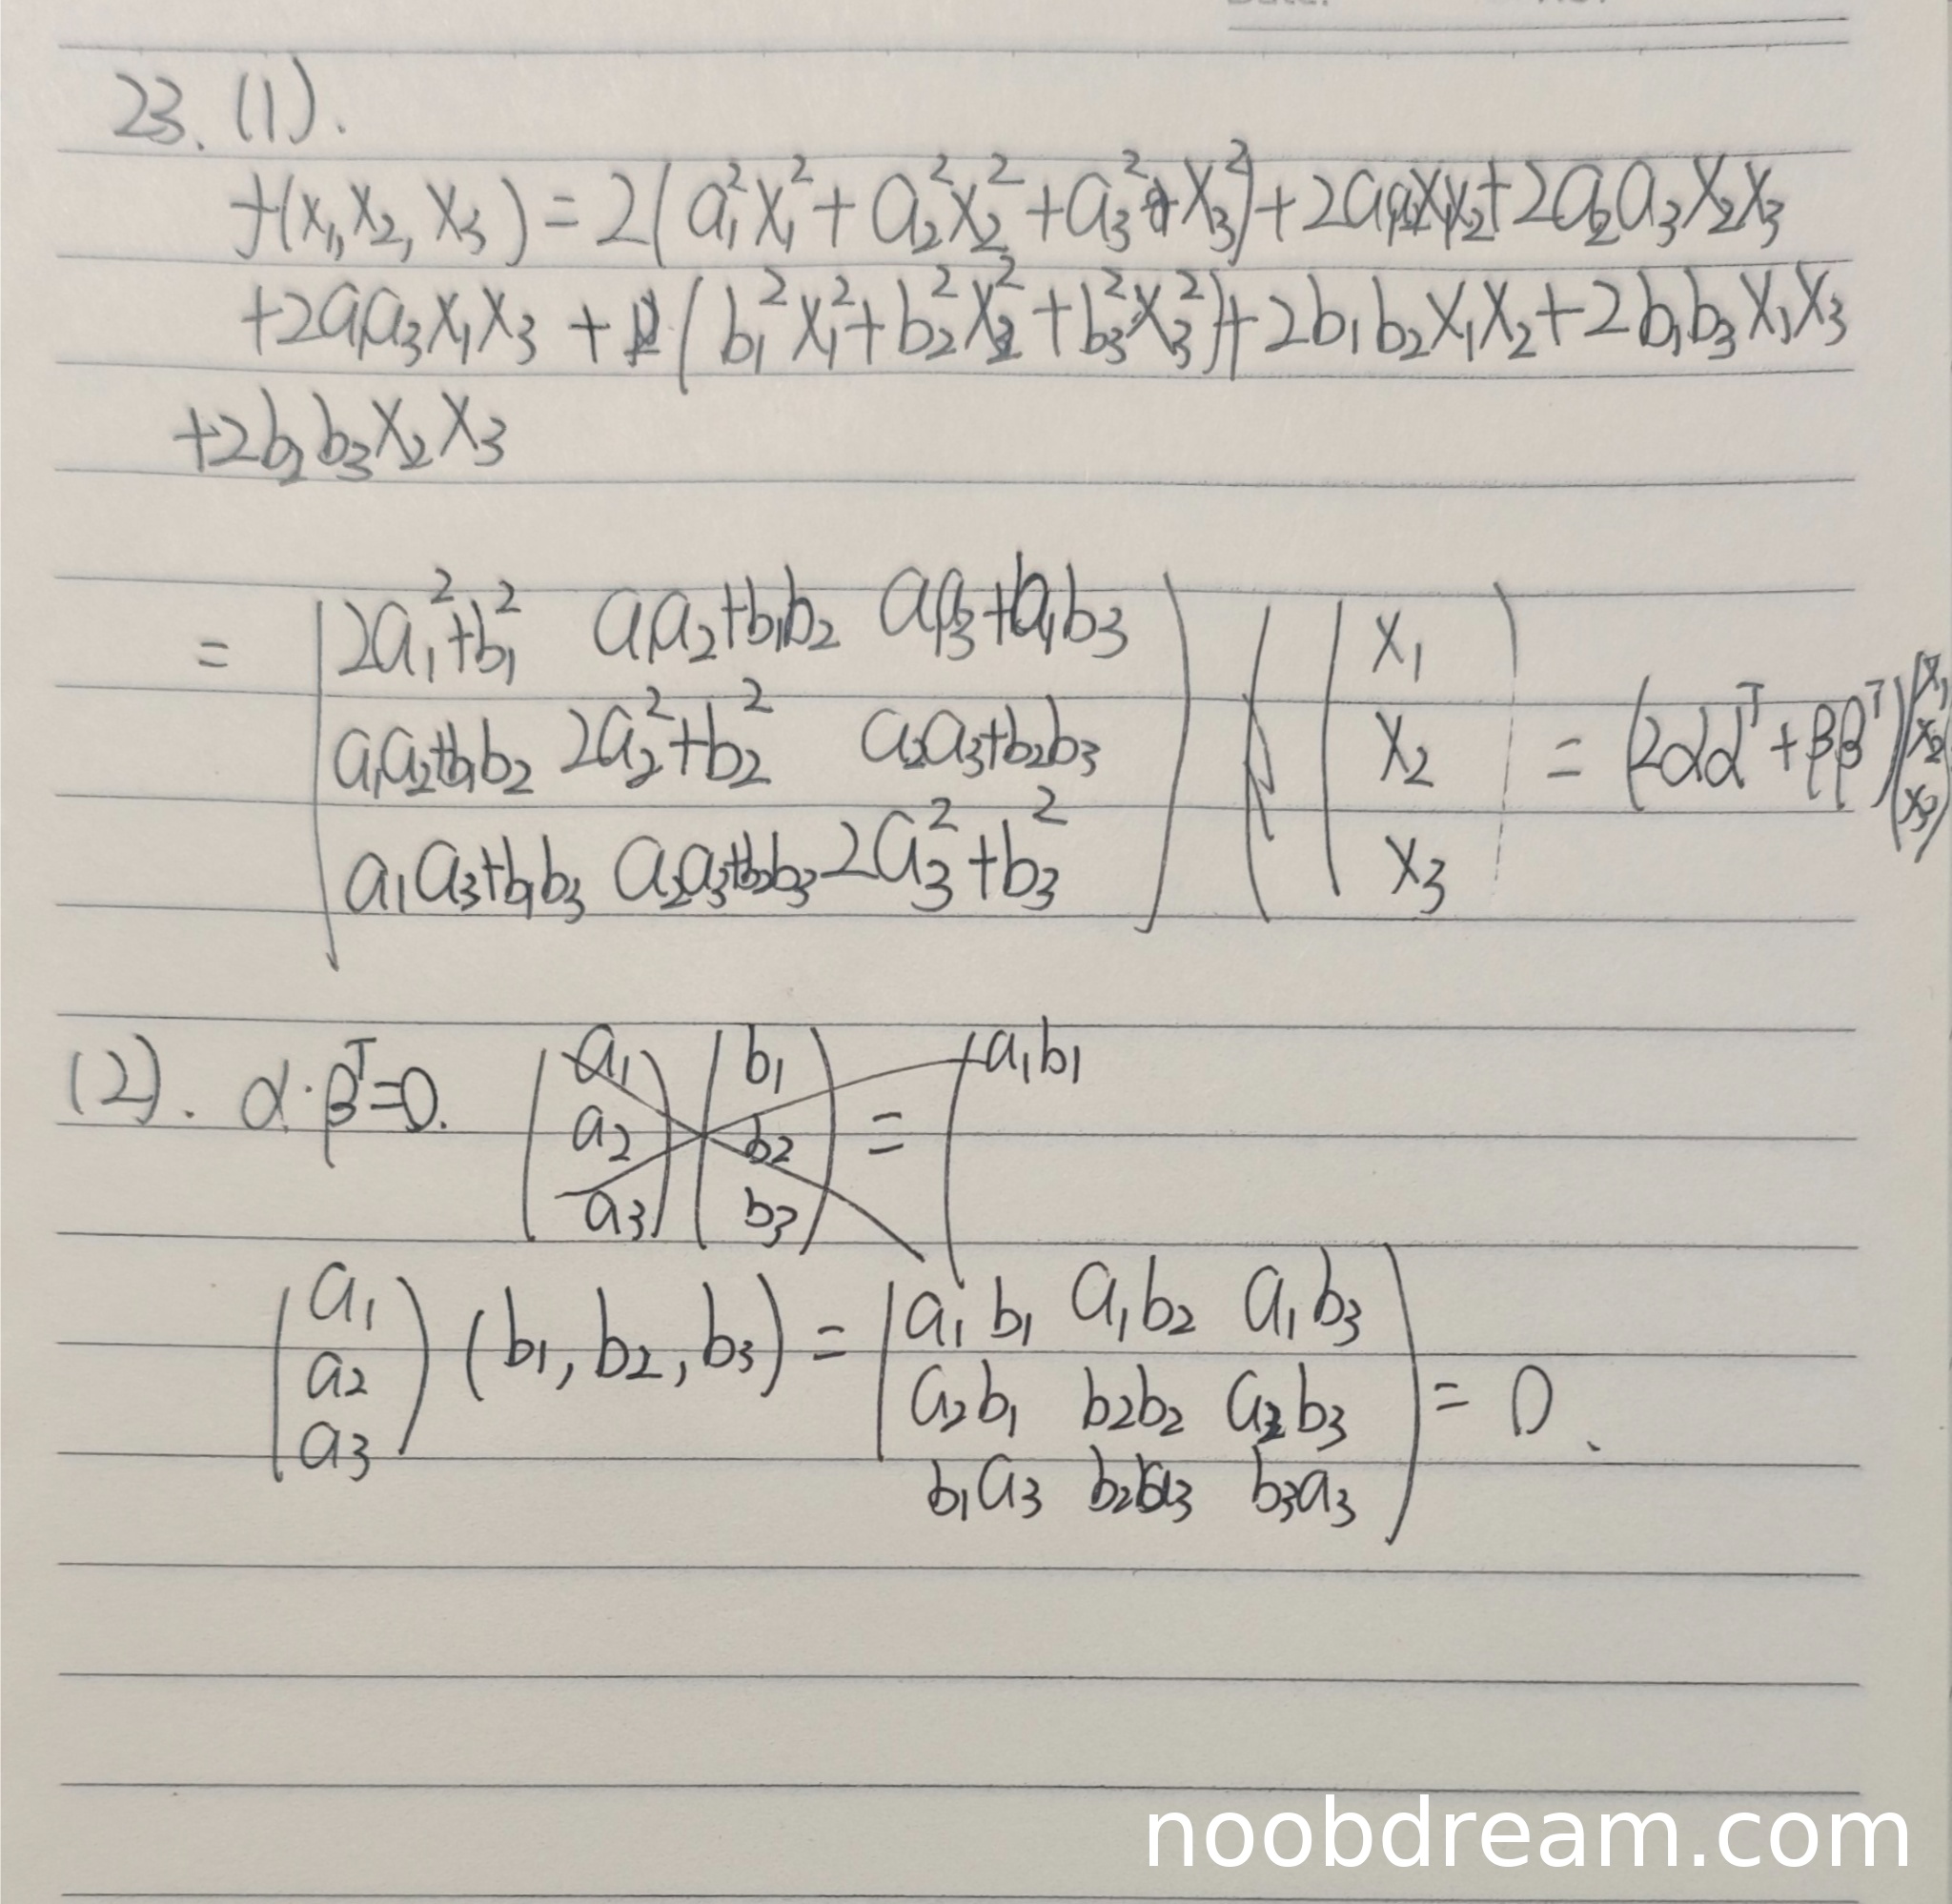 23. (1).
f(x₁, x₂, x₃) = 2(a₁²x₁² + a₂²x₂² + a₃²x₃²) + 2a₁a₂x₁x₂ + 2a₂a₃x₂x₃
+2a₁a₃x₁x₃ + (b₁²x₁² + b₂²x₂² + b₃²x₃²) + 2b₁b₂x₁x₂ + 2b₁b₃x₁x₃
+2b₂b₃x₂x₃
= ( 2a₁²+b₁² a₁a₂+b₁b₂ a₁a₃+b₁b₃ ) ( x₁ )
( a₁a₂+b₁b₂ 2a₂²+b₂² a₂a₃+b₂b₃ ) ( x₂ ) = (2αα^T + ββ^T) (x₁ x₂ x₃)
( a₁a₃+b₁b₃ a₂a₃+b₂b₃ 2a₃²+b₃² ) ( x₃ )
(2). α·β^T=0. (a₁ a₂ a₃) (b₁ b₂ b₃) = ( a₁b₁
( a₁ ) (b₁, b₂, b₃) = ( a₁b₁ a₁b₂ a₁b₃ )
( a₂ ) ( a₂b₁ b₂b₂ a₂b₃ ) = 0.
( a₃ ) ( b₁a₃ b₂a₃ b₃a₃ )
noobdream.com